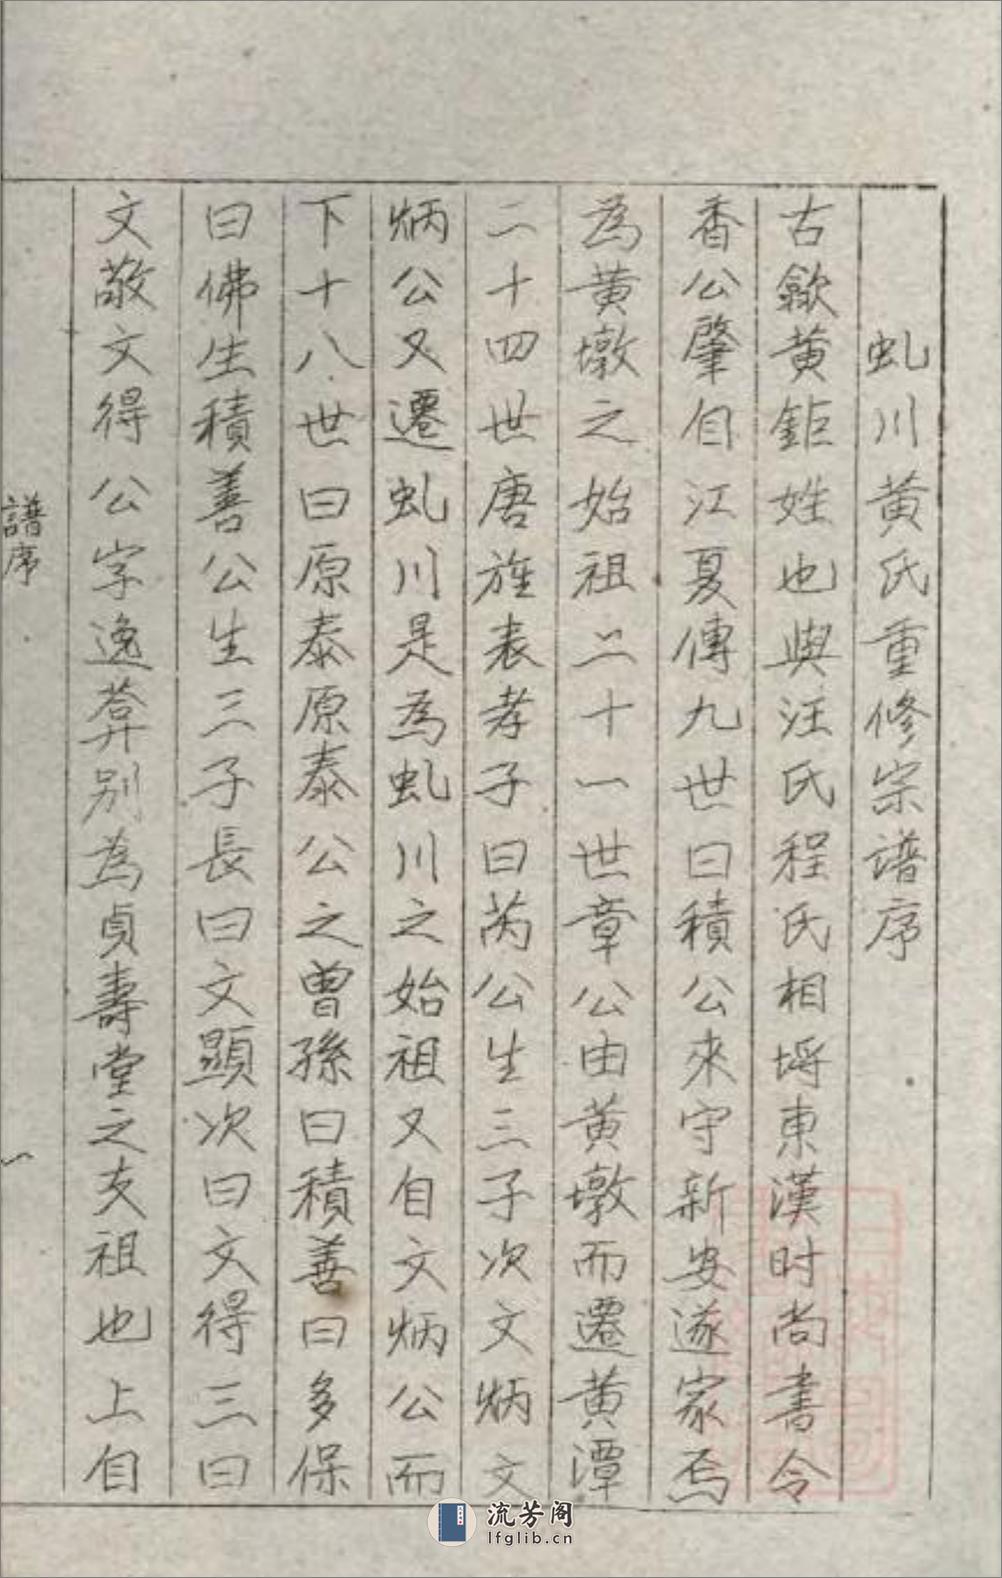 虬川黄氏重修宗譜序
古歙黄鉅姓也與汪氏程氏相埒東漢时尚書令
香公肇自江夏傳九世曰積公來守新安遂家焉
為黄墩之始祖二十一世章公由黄墩而遷黄潭
二十四世唐旌表孝子曰芮公生三子次文炳文
炳公又遷虬川是為虬川之始祖又自文炳公而
下十八世曰原泰原泰公之曾孫曰積善曰多保
曰佛生積善公生三子長曰文顯次曰文得三曰
文敬文得公字逸葊别為貞壽堂之支祖也上自
譜序
一
流芳阁
lfglib.cn